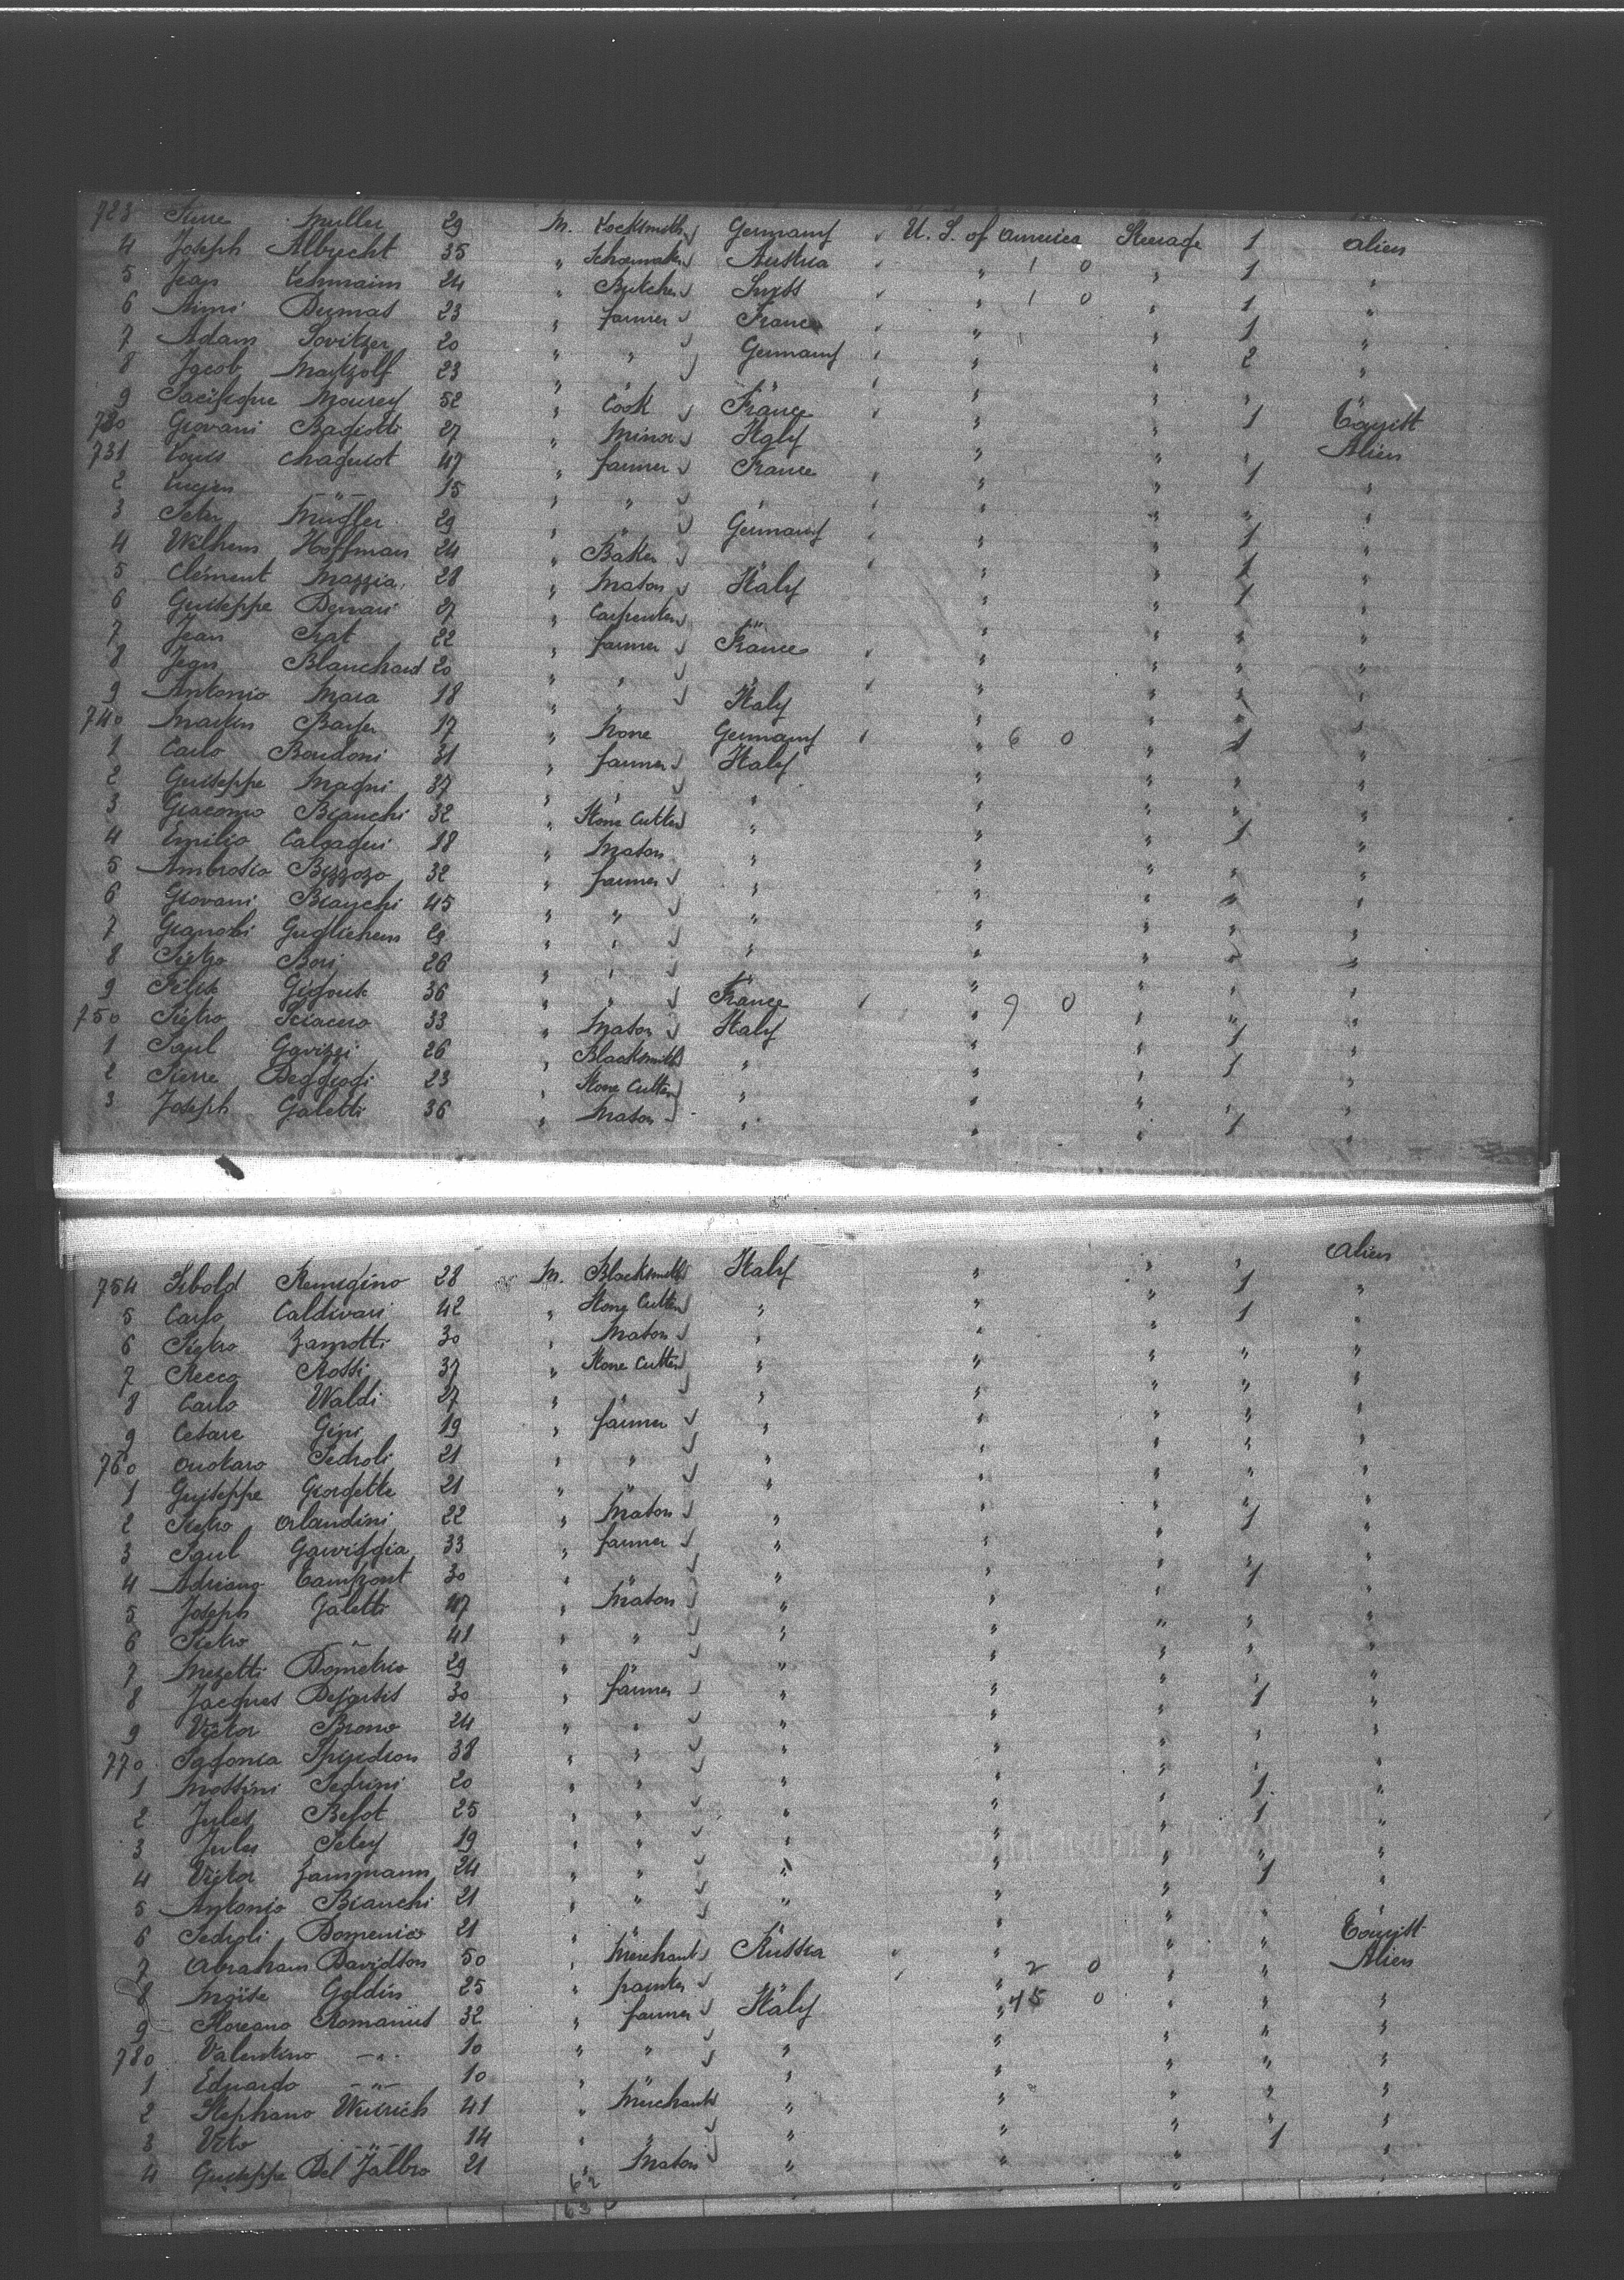 723 Pierre Muller 29 M. Locksmith Germany U. S. of America Steerage 1 alien
4 Joseph Albrecht 35 " Schoemaker Austria " 1 0 " 1 "
5 Jean Lehmann 24 " Butcher Swiss " 1 0 " 1 "
6 Aimi Dumas 23 " farmer France " " 1 "
7 Adam Sovitzer 20 " " Germany " " 2 "
8 Jacob Martzolf 23 " " " " " " "
9 Pacifique Mourey 52 " Cook France " " 1 Tourist
730 Giovani Bagiotti 27 " Minor Italy " " " Alien
731 Louis Chaguiot 47 " farmer France " " 1 "
2 Lucien -"- 15 " " " " " " "
3 Peter Mugler 29 " " Germany " " 1 "
4 Wilhem Hoffman 24 " Baker " " " 1 "
5 Clement Mazzia 28 " Mason Italy " " 1 "
6 Guiseppe Denari 27 " Carpenter " " " " "
7 Jean Crat 22 " farmer France " " " "
8 Jean Blanchard 20 " " " " " " "
9 Antonio Mara 18 " " Italy " " " "
740 Martin Bayer 17 " None Germany " 6 0 " 1 "
1 Carlo Bondoni 31 " farmer Italy " " " "
2 Guiseppe Magni 37 " " " " " " "
3 Giacomo Bianchi 32 " Stone Cutter " " " 1 "
4 Emilio Calgagni 18 " Mason " " " " "
5 Ambrosio Bizzozo 32 " farmer " " " " "
6 Giovani Bianchi 45 " " " " " " "
7 Guglielmm 29 " " " " " " "
8 Pietro Bori 26 " " " " " " "
9 36 " " France " 9 0 " " "
750 Pietro Sciacero 33 " Mason Italy " " 1 "
1 Paul Gavizzi 26 " Blacksmith " " " 1 "
2 Pierre Deggiogi 23 " Stone Cutter " " " " "
3 Joseph Galetti 36 " Mason " " " 1 "
Alien
754 Sibold Remigino 28 M. Blacksmith Italy " " 1 "
5 Carlo Caldivari 42 " Stone Cutter " " " 1 "
6 Pietro Zanotti 30 " Mason " " " " "
7 Recco Rossi 37 " Stone Cutter " " " " "
8 Carlo Waldi 27 " " " " " " "
9 Cesare Gini 19 " farmer " " " " "
760 Onotaro Pedroli 21 " " " " " " "
1 Guiseppe Giorgette 21 " " " " " " "
2 Pietro Orlandini 22 " Mason " " " 1 "
3 Paul Gaviggia 33 " farmer " " " " "
4 Adriano Campzont 30 " " " " " 1 "
5 Joseph Galetti 47 " Mason " " " " "
6 Pietro -"- 41 " " " " " " "
7 Mezetti Dometrio 29 " " " " " " "
8 Jacques Desartis 30 " farmer " " " 1 "
9 Victor Brono 24 " " " " " " "
770 Sagonia Spiridion 38 " " " " " " "
1 Mossini Pedrini 20 " " " " " 1 "
2 Jules Besot 25 " " " " " 1 "
3 Jules Petey 19 " " " " " " "
4 Victor Zansmann 24 " " " " " 1 "
5 Antonio Bianchi 21 " " " " " " "
6 Pedroli Domenico 21 " " " " " " Tourist
7 Abraham Davidson 50 " Merchant Russia " 2 0 " " Alien
8 Moïse Goldin 25 " painter " " 45 0 " " "
9 Floreano Romanius 32 " farmer Italy " " " "
780 Valentino -"- 10 " " " " " " "
1 Eduardo -"- 10 " " " " " " "
2 Stephano Weirich 41 " Merchant " " " " "
3 Vito -"- 14 " " " " " 1 "
4 Guiseppe Del Jalbro 21 " Mason " " " " "
62
63